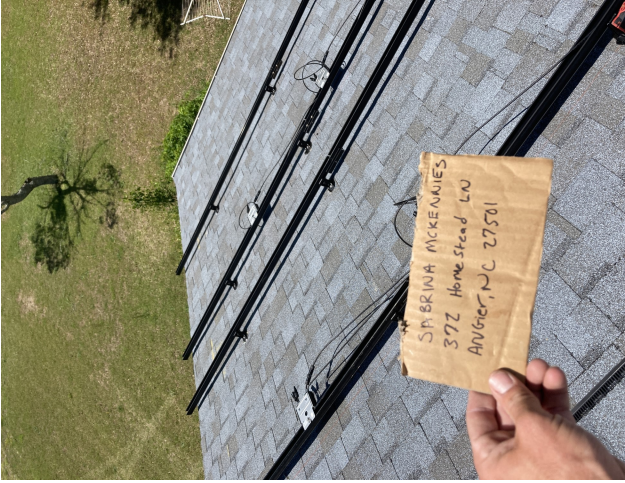 SABRINA MCKENNIES
372 Homestead LN
ANGIER, NC 27501